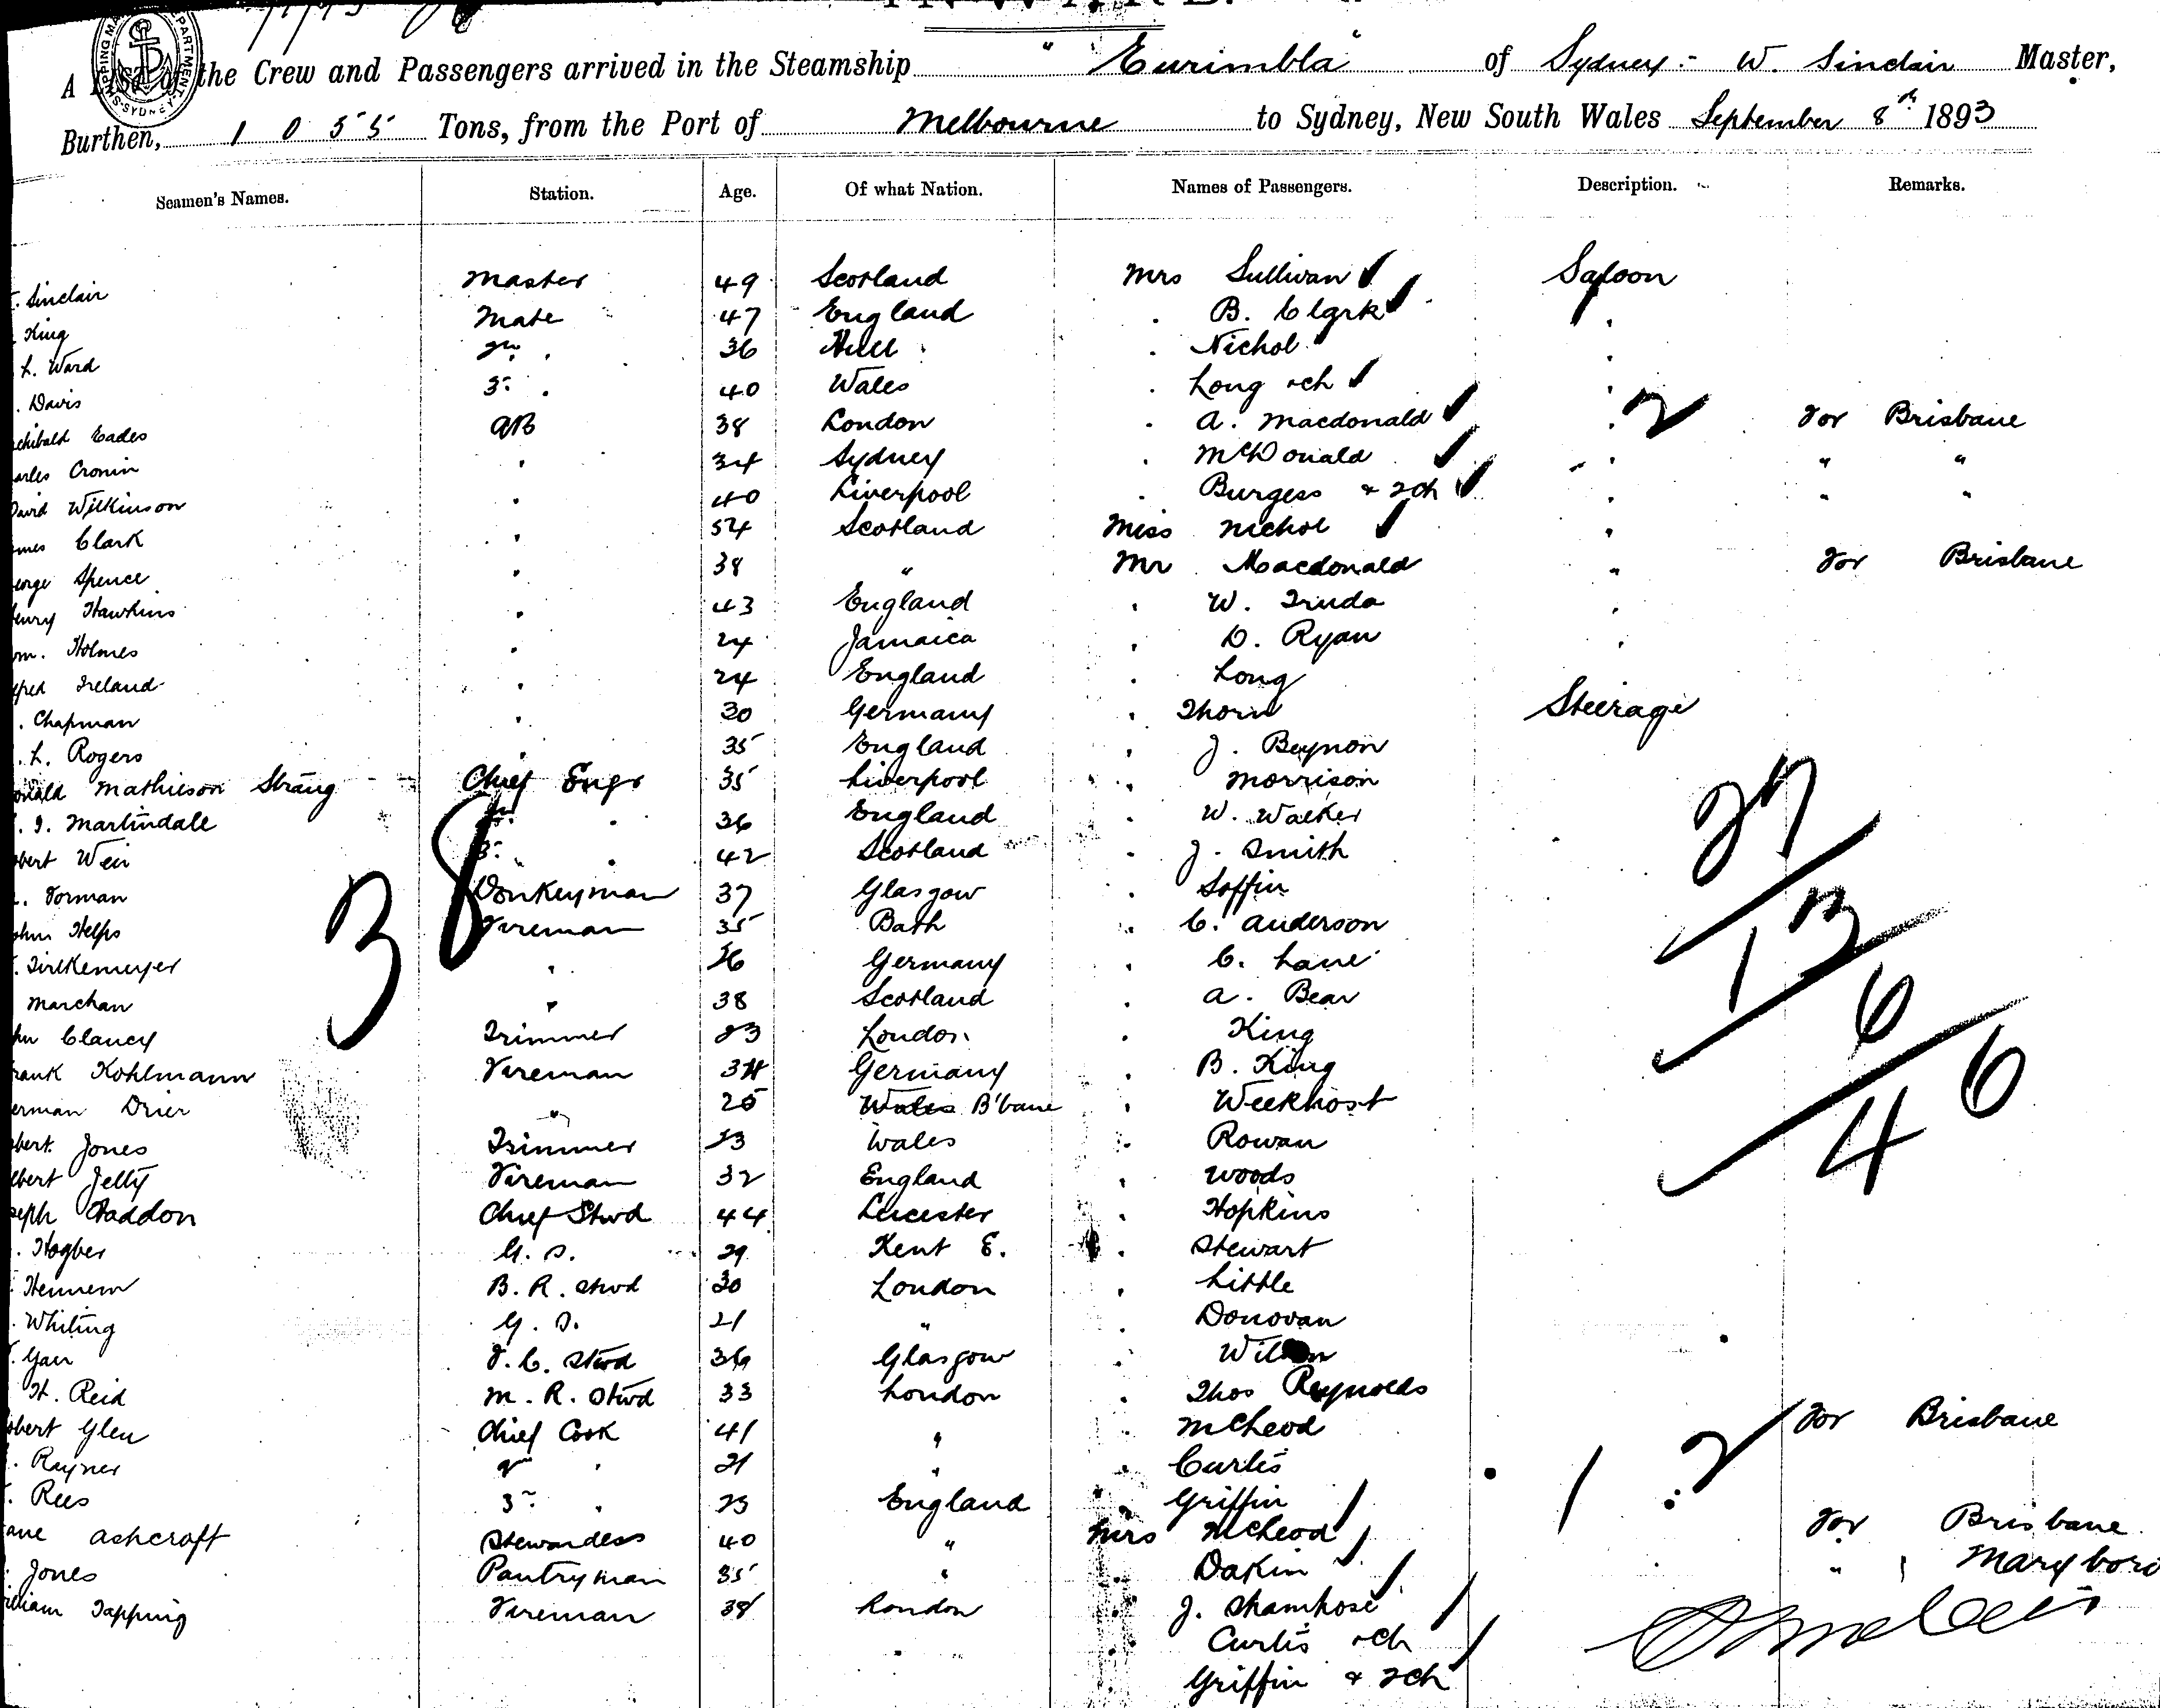 INWARD.
A List of the Crew and Passengers arrived in the Steamship "Eurimbla" of Sydney :- W. Sinclair Master,
Burthen, 1055 Tons, from the Port of Melbourne to Sydney, New South Wales September 8th 1893
Seamen's Names. Station. Age. Of what Nation. Names of Passengers. Description. Remarks.
Sinclair Master 49 Scotland Mrs Sullivan Saloon
King Mate 47 England . B. Clark
L. Ward 2nd . 36 Hull . Nichol
Davis 3rd . 40 Wales . Long & ch
chibald Eades AB 38 London . A. Macdonald 2 For Brisbane
arles Cronin . 34 Sydney . McDonald " "
David Wilkinson . 40 Liverpool . Burgess & 2 ch " "
mes Clark . 54 Scotland Miss Nichol
eorge Spence . 38 " Mr Macdonald " For Brisbane
enry Hawkins . 43 England . W. Truda
m. Holmes . 24 Jamaica . D. Ryan
fred Ireland . 24 England . Long
. Chapman . 30 Germany . Thorn Steerage
. L. Rogers . 35 England . J. Beynon
onald Mathieson Strang Chief Engr 35 Liverpool . Morrison
. Martindale 2nd . 36 England . W. Walker
obert Weir 3rd . 42 Scotland . J. Smith
. Forman Donkeyman 37 Glasgow . Soffin
ohn Helps Fireman 35 Bath . C. Anderson
. . 26 Germany . C. Lane
Marchan . 38 Scotland . A. Bear
hn Clancy Trimmer 23 London . King
rank Kohlmann Fireman 34 Germany . B. King
erman Drier " 25 Wales B'bane .
obert Jones Trimmer 23 Wales . Rowan
lbert Jelly Fireman 32 England . Woods
seph Paddon Chief Stwd 44 Leicester . Hopkins
. Hogber G. S. 29 Kent E. . Stewart
. Hennem B. R. Stwd 30 London . Little
. Whiting G. S. 21 " . Donovan
. F. C. Stwd 36 Glasgow . Wilson
H. Reid M. R. Stwd 33 London . Thos Reynolds
obert Glen Chief Cook 41 " . McLeod For Brisbane
. Rayner 2nd . 21 " . Curtis
. Rees 3rd . 23 England . Griffin
ane Ashcroft Stewardess 40 " Mrs McLeod For Brisbane
Jones Pantryman 35 " . Dakin " Maryboro
illiam Tapping Fireman 38 London . J. Shamhose
. Curtis & ch
Griffin & 2 ch
38
27
13
6
46
1 2